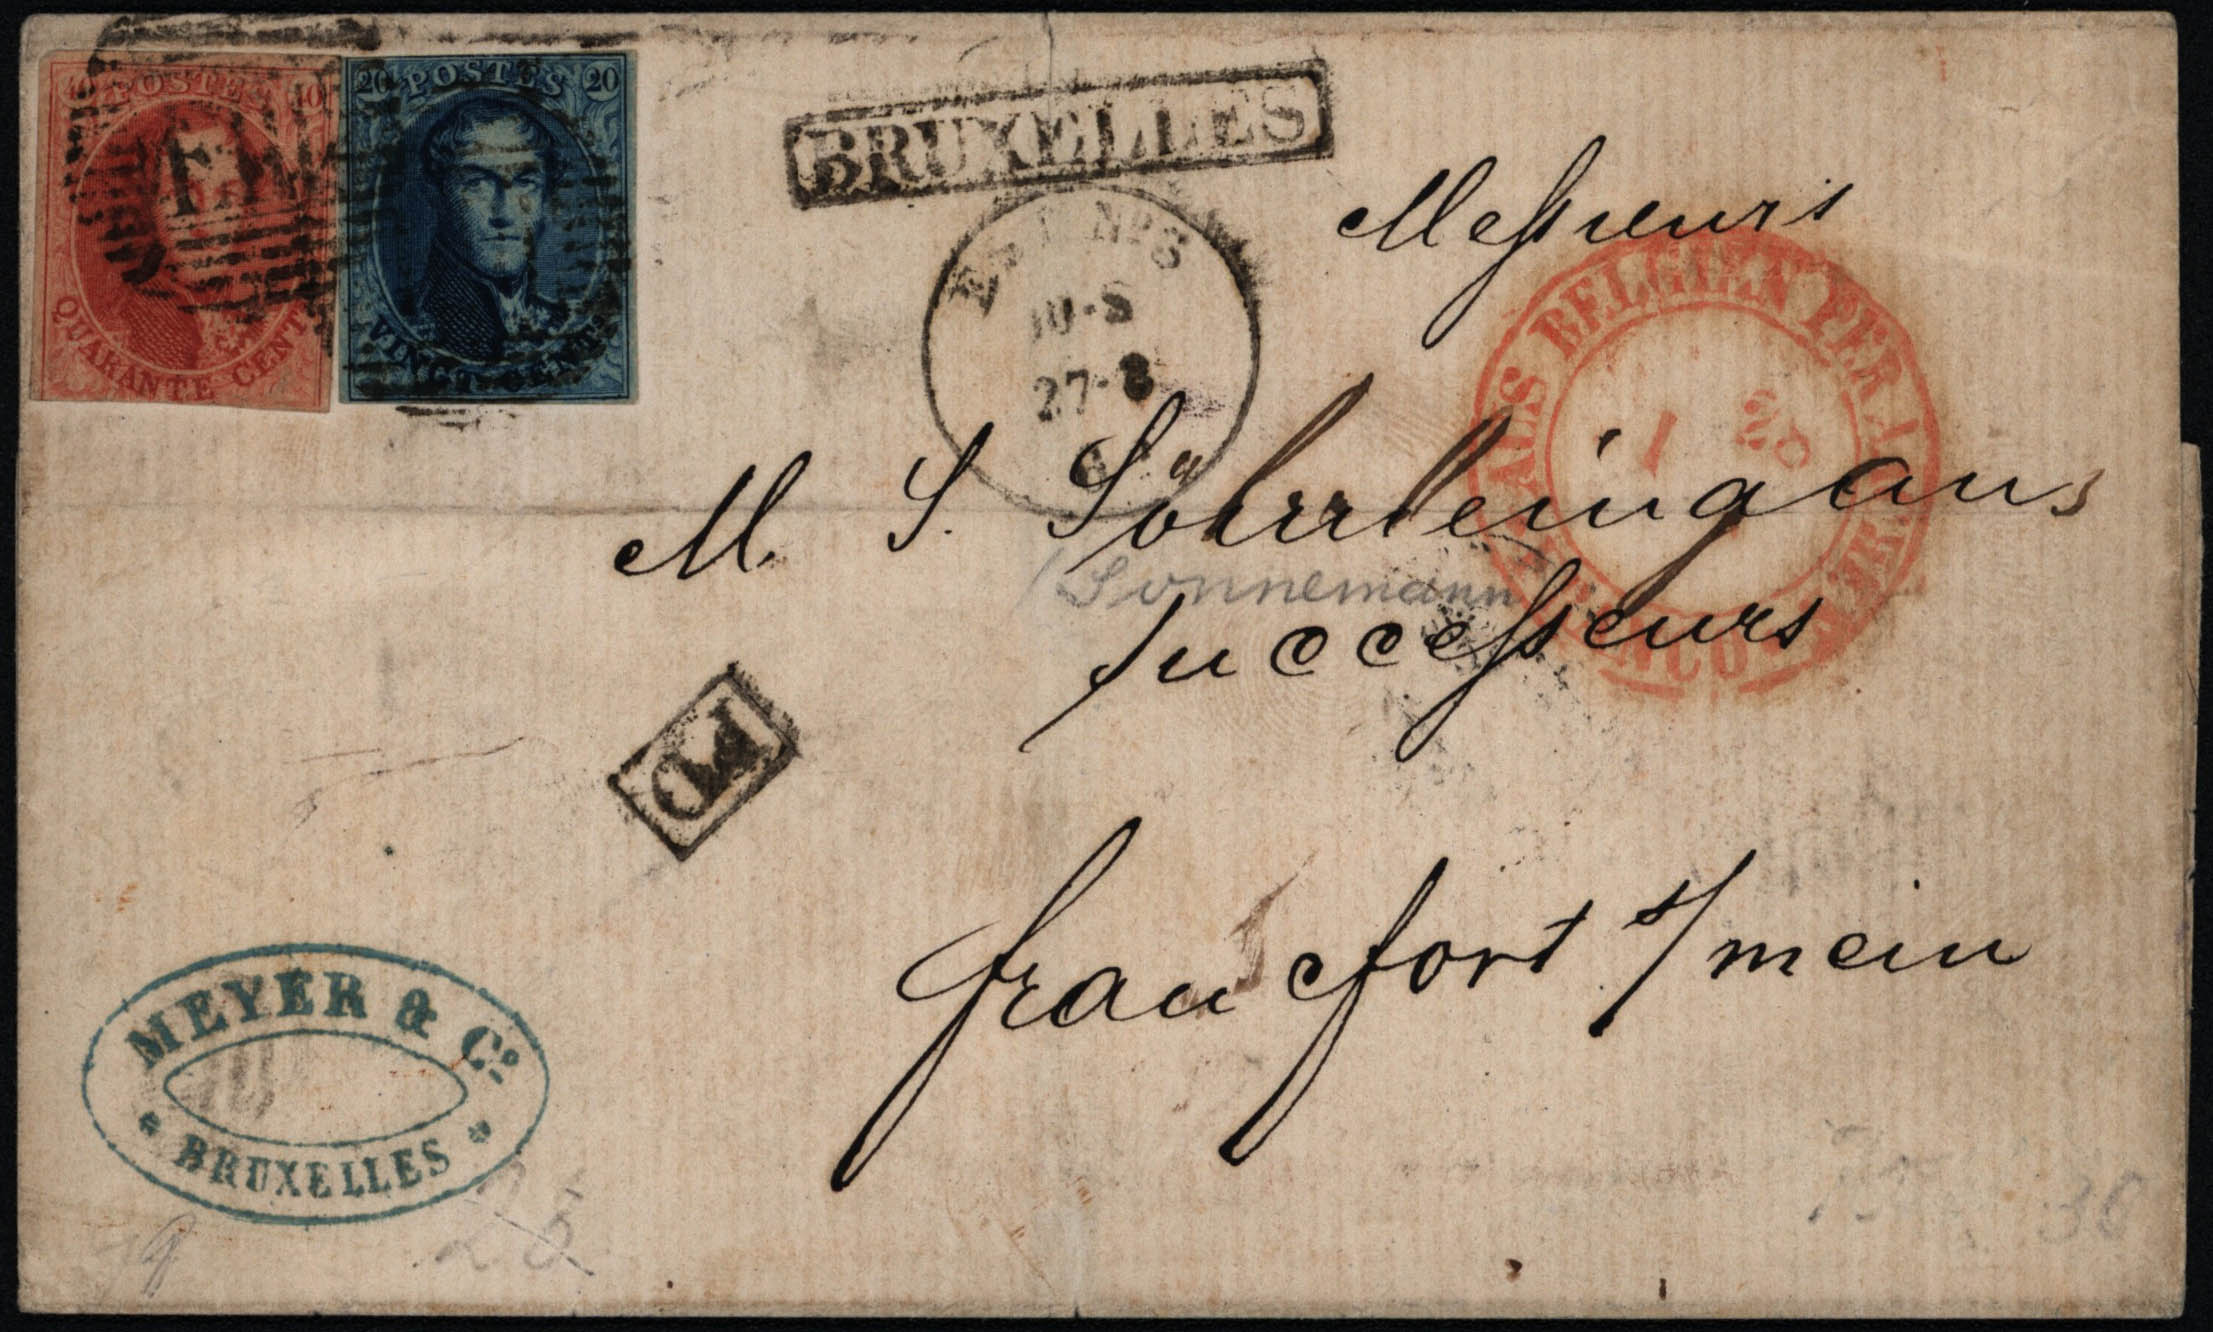 40 POSTES 40
QUARANTE CENT
20 POSTES 20
VINGT CENT
BRUXELLES
Est No 5
10-S
27-8
6
Messieurs
ALS BELGIEN PER AACHEN
FRANCO
1 28
M. S.
(Sonnemann
Successeurs
PD
francfort s/mein
MEYER & Co.
BRUXELLES
9
25
36